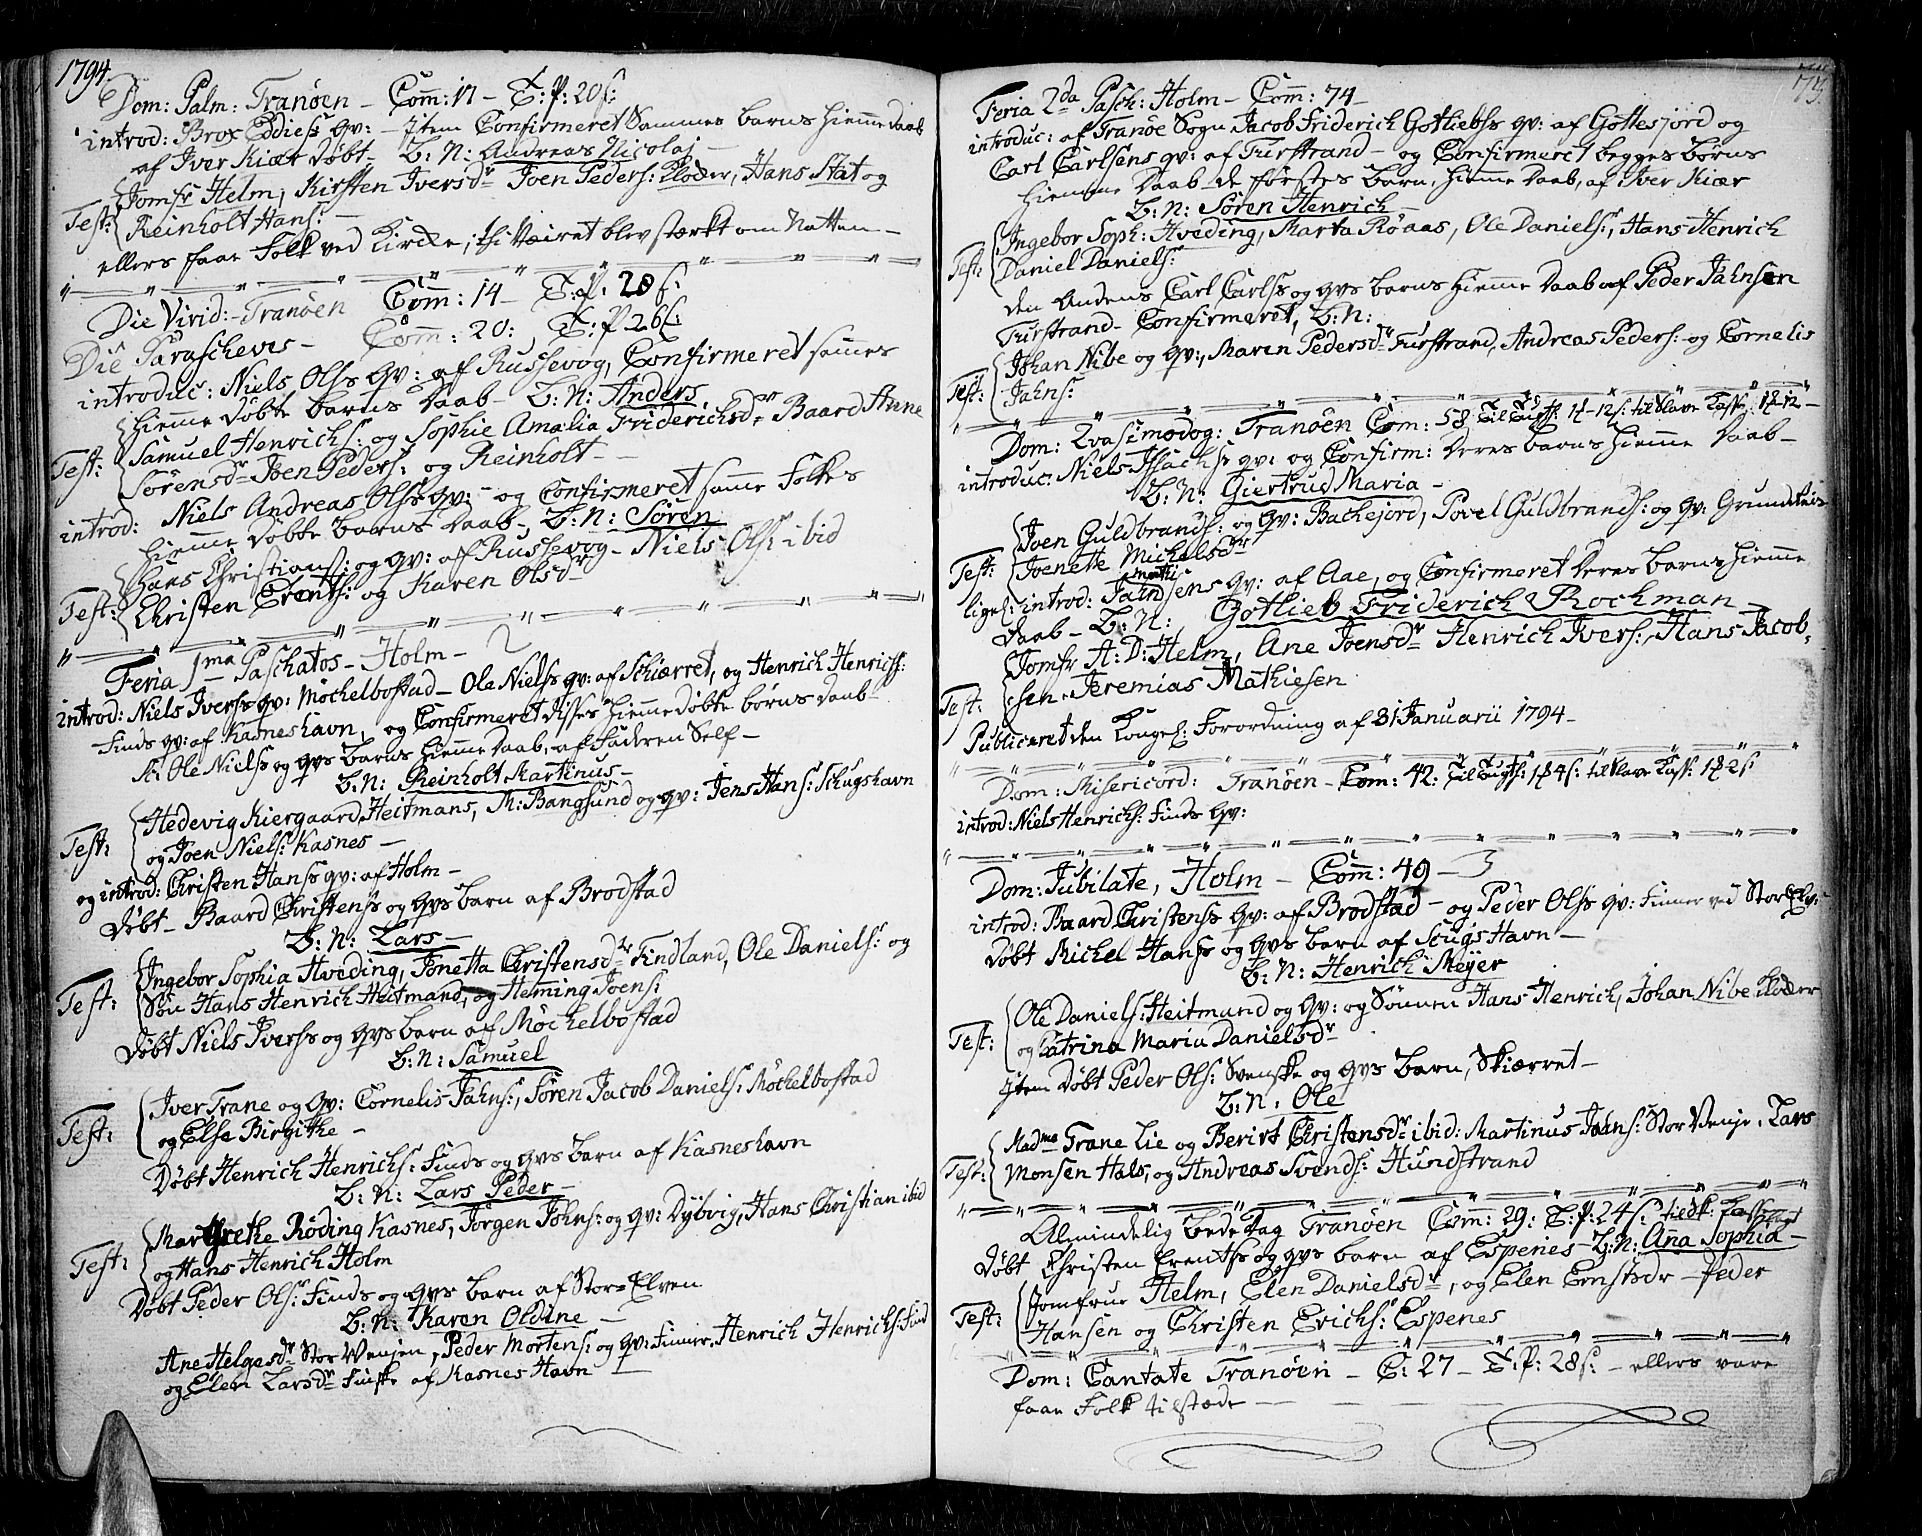 1794
Dom: Palm: Tranöen – Com̄: 17 – T: P: 20 s:
introd: Brox Eddiess qv: – Item Confirmeret Sammes barns hiemme daab
af Iver Kiær döbt – B: N: Andreas Nicolaj –
Jomfr Helm, Kirsten Iversdr Joen Peders: Kloder, Hans Stat og
Test: Reinholt Hans: –
ellers faae Folk ved Kirke, thi Veiret blev stærkt om Natten –
Die Virid: – Tranöen Com̄: 14 – T: P: 28 s:
Die Parascheves – Com̄: 20: T: P 26 s:
introduc: Niels Olss qv: af Russevog, Confirmeret sammes
hiemme döbte barns daab – B: N: Anders
Samuel Henrichs: og Sophie Amalia Friderichsdr Baard Anne
Test: Sörensdr Joen Peders: og Reinholt –
introd: Niels Andreas Olss qv: – og Confirmeret samme Folkes
hiemme döbte barns daab – B: N: Sören
Hans Christians: og qv: af Russevog – Niels Ols: ibid
Test: Christen Erents: og Karen Olsdr
Feria 1ma Paschatos – Holm – 2
introd: Niels Iverss qv: Möchelbostad – Ole Nielss qv: af Schiærret, og Henrich Henrichs:
Finds qv: af Kasneshavn, og Confirmeret disses hiemme döbte börns daab –
N: Ole Nielss og qvs barns hiemme daab, af Faderen Self –
B: N: Reinholt Martinus –
Hedevig Kiergaard, Heitmans, M: Bangsund og qv: Jens Hans: Schugshavn
Test: og Joen Niels: Kasnes –
og introd: Christen Hanss qv: af Holm –
döbt – Baard Christenss og qvs barn af Brodstad
B: N: Lars –
Ingebor Sophia Hveding, Jonetta Christensdr Findland, Ole Daniels: og
Test: Sön Hans Henrich Heitmand, og Heming Joens:
döbt Niels Iverss og qvs barn af Möchelbostad
B: N: Samuel
Iver Trane og qv: Cornelis Jahns:, Sören Jacob Daniels: Möchelbostad
Test: og Else Birgithe –
Döbt Henrich Henrichs: Finds og qvs barn af Kasneshavn
B: N: Lars Peder –
Margrethe Röding Kasnes, Jörgen Johns: og qv: Dybvig, Hans Christian ibid
Test: og Hans Henrich Holm
Döbt Peder Ols: Finds og qvs barn af Stor-Elven
B: N: Karen Oldine –
Ane Helgesdr Stor Venjen, Peder Mortens: og qv: Finner, Henrich Henrichs: Find
og Elen Larsdr Finske af Kasnes Havn –
73.
Feria 2da Pasch: Holm – Com̄: 74 –
introduc: af Tranöe Sogn Jacob Friderich Gotliebss qv: af Gottesjord og
Carl Carlsens qv: af Furstrand – og Confirmeret begges börns
hiemme daab de förstes barn, hiemme daab, af Iver Kiær
B: N: Sören Henrich
Ingebor Soph: Hveding, Marta Röaas, Ole Daniels:, Hans Henrich
Test: Daniel Daniels:
den Andens Carl Carlss og qvs barns hiemme daab af Peder Jahnsen
Furstrand – Confirmeret, B: N:
Johan Nibe og qv:, Maren Pedersdr Furstrand, Andreas Peders: og Cornelis
Test: Jahns:
Dom: Qvasimodog: Tranöen Com: 58 Til Tugth: 1 – 12 s: til Slave Kass: 12 –
introduc: Niels Isachss qv: og Confirm: deres barns hiemme daab –
B: N: Giertrud Maria –
Joen Guldbrands: og qv: Bachejord, Povel Guldbrands: og qv: Grundtvin
Test: Joenette Michelsdr
Mathi
ligel: introd: Jahnsens qv: af Aae, og Confirmeret deres barns hiemme
daab – B: N: Gotlieb Friderich Rochman –
Jomfr A: D: Helm, Ane Joensdr Henrich Ivers:, Hans Jacob,
Test: sen. Jeremias Mathiesen
Publiceret den Kongel: Forordning af 31 Januarii 1794 –
Dom: Misericord: Tranöen – Com: 42: Til Tugth: 1 4 s: til Slave Kass: 1 2 s
introd: Niels Henrichs: Finds qv:
Dom: Jubilate, Holm – Com̄: 49 – 3
introd: Baard Christenss qv: af Brodstad – og Peder Olss qv: Finner ved Stor Elv:
Döbt Michel Hanss og qvs barn af Scugs Havn –
B: N: Henrich Meyer
Ole Daniels: Heitmand og qv: og Sönnen Hans Henrich, Johan Nibe Kloder
Test: og Catrina Maria Danielsdr
Item Döbt Peder Ols: Svenske og qvs barn, Skiærret –
B: N: Ole
Madme Trane Lie og Berirt Christensdr ibid: Martinus Jahns: Stor Venje, Lars
Test: Monsen Hals, og Andreas Svends: Hundstrand
Almindelig bede Dag Tranöen Com̄: 29: T: P: 24 s:
Döbt Christen Erentss og qvs barn af Espenes – B: N: Ana Sophia –
Jomfrue Helm, Elen Danielsdr, og Elen Ernstsdr – Peder
Test: Hansen og Christen Erichs: Espenes
Dom: Cantate Tranöen – C: 27 – T: P: 28 s: – ellers vare
faae Folk tilstæde –